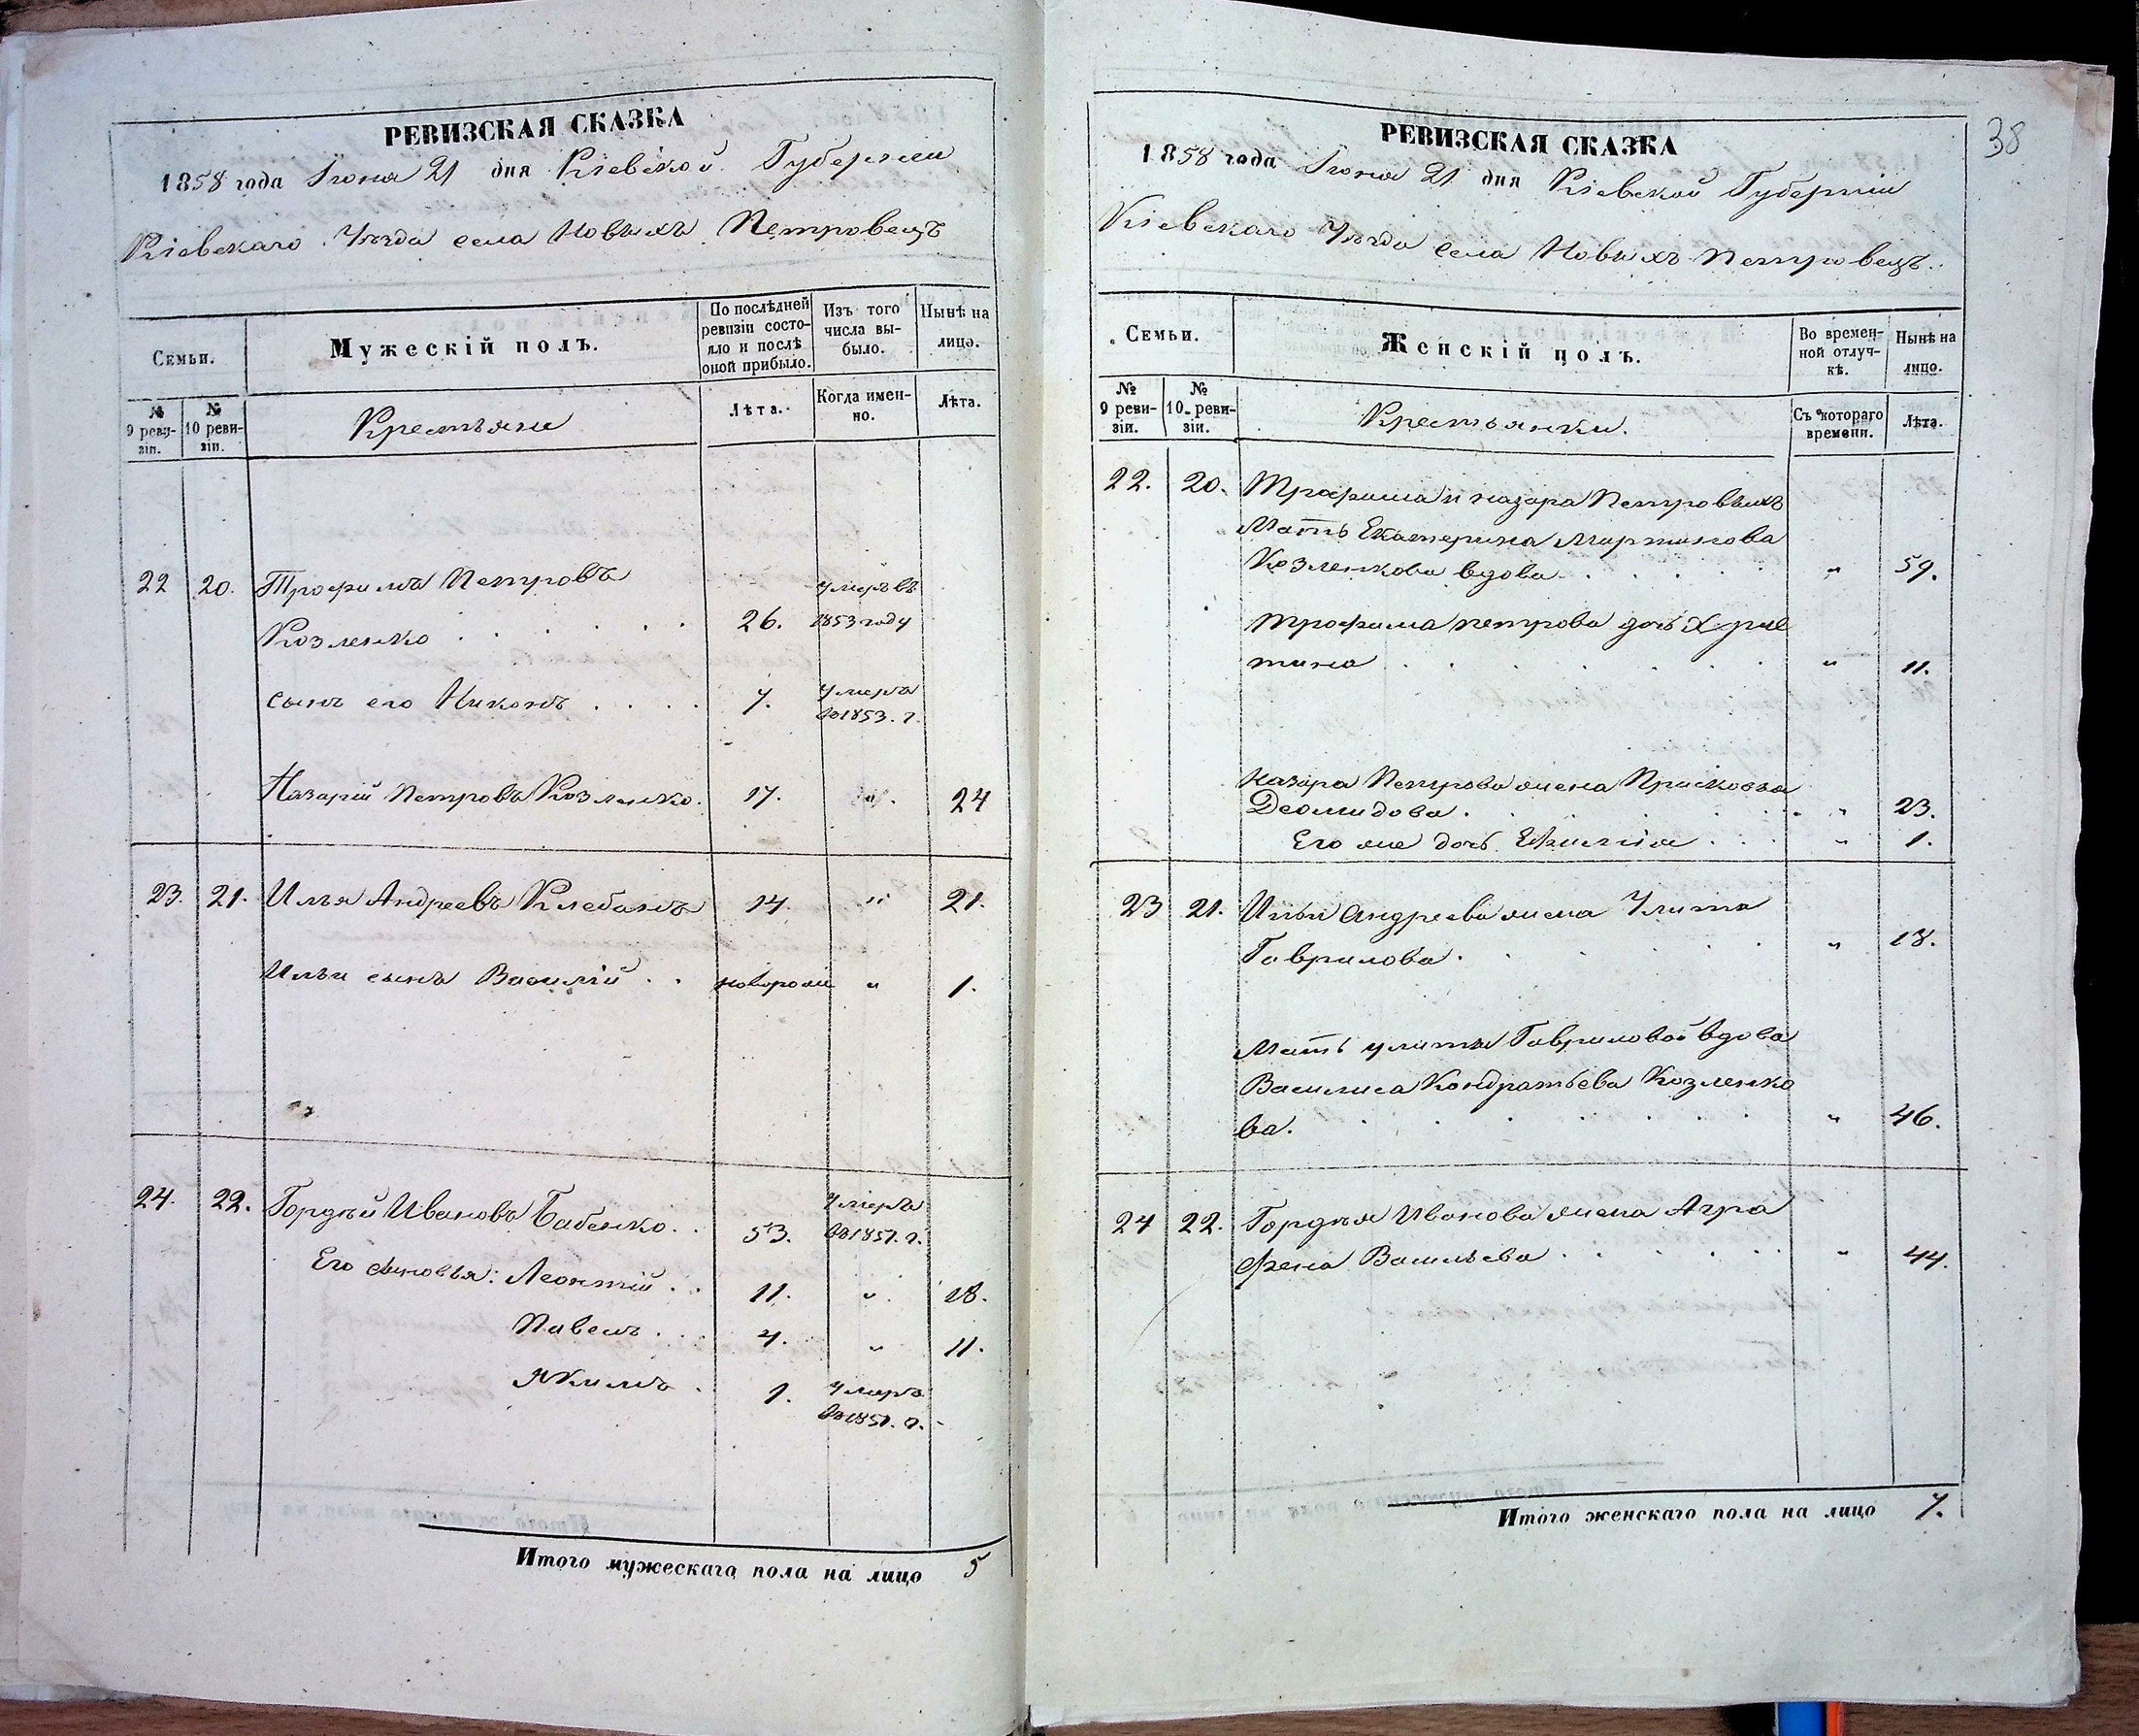 РЕВИЗСКАЯ СКАЗКА
1858 года Іюня 21 дня Кіевской Губерніи
Кіевскаго Уѣзда села Новыхъ Петровецъ
Семьи.
Мужескій полъ.
По послѣдней ревизіи состояло и послѣ оной прибыло.
Изъ того числа выбыло.
Нынѣ на лицо.
№ 9 ревизіи.
№ 10 ревизіи.
Крестьяни
Лѣта.
Когда именно.
Лѣта.
22 20. Трофимъ Петровъ умеръ въ
Козленко 26. 1853 году
сынъ его Никонъ 7. умеръ
въ 1853. г.
Назарій Петровъ Козленко. 17. " 24
23. 21. Илья Андреевъ Клебанъ 14. " 21.
Ильи сынъ Василій новорож " 1.
24. 22. Гордѣй Ивановъ Бабенко 53. умеръ
въ 1857. г.
Его сыновья: Леонтій 11. " 18.
Павелъ 4. " 11.
Якимъ 1. умеръ
въ 1851. г.
Итого мужескаго пола на лицо 5
38
РЕВИЗСКАЯ СКАЗКА
1858 года Іюня 21 дня Кіевской Губерніи
Кіевскаго Уѣзда села Новыхъ Петровецъ.
Семьи.
Женскій полъ.
Во временной отлучкѣ.
Нынѣ на лицо.
№ 9 ревизіи.
№ 10 ревизіи.
Крестьянки.
Съ котораго времени.
Лѣта.
22. 20. Трофима и назара Петровыхъ
Мать Екатерина Мартинова
Козленкова вдова " 59.
трофима петрова дочь Хрис
тина " 11.
Назара Петрова жена Прасковья
Деомидова. " 23.
Его же дочь " 1.
23 21. Ильи Андреева жена Улита
Гаврилова. " 18.
Мать улиты Гавриловой вдова
Василиса Кондратьева Козленко
ва. " 46.
24 22. Гордѣя Иванова жена Агра
фена Васильева " 44.
Итого женскаго пола на лицо 7.